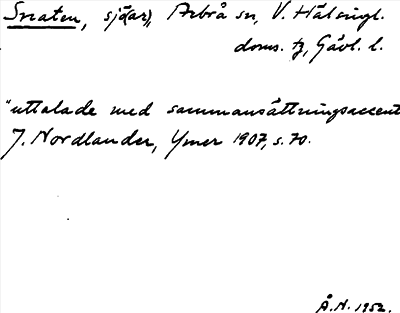 Snaten, sjö(ar), Arbrå sn, V. Hälsingl.
doms. tg, Gävl. l.
"uttalade med sammansättningsaccent
J. Nordlander, Ymer 1907, s. 70.
Å.N. 1952.